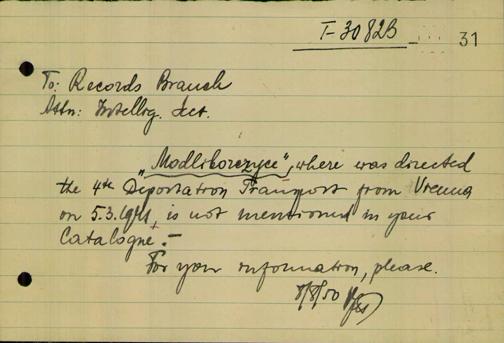 T-3082B
31
To: Records Branch
Attn: Intellig. Sct.
"Modliborzyce", where was directed
the 4th Deportation Transport from Vienna
on 5.3.1941, is not mentioned in your
Catalogue.-
For your information, please.
8/8/50